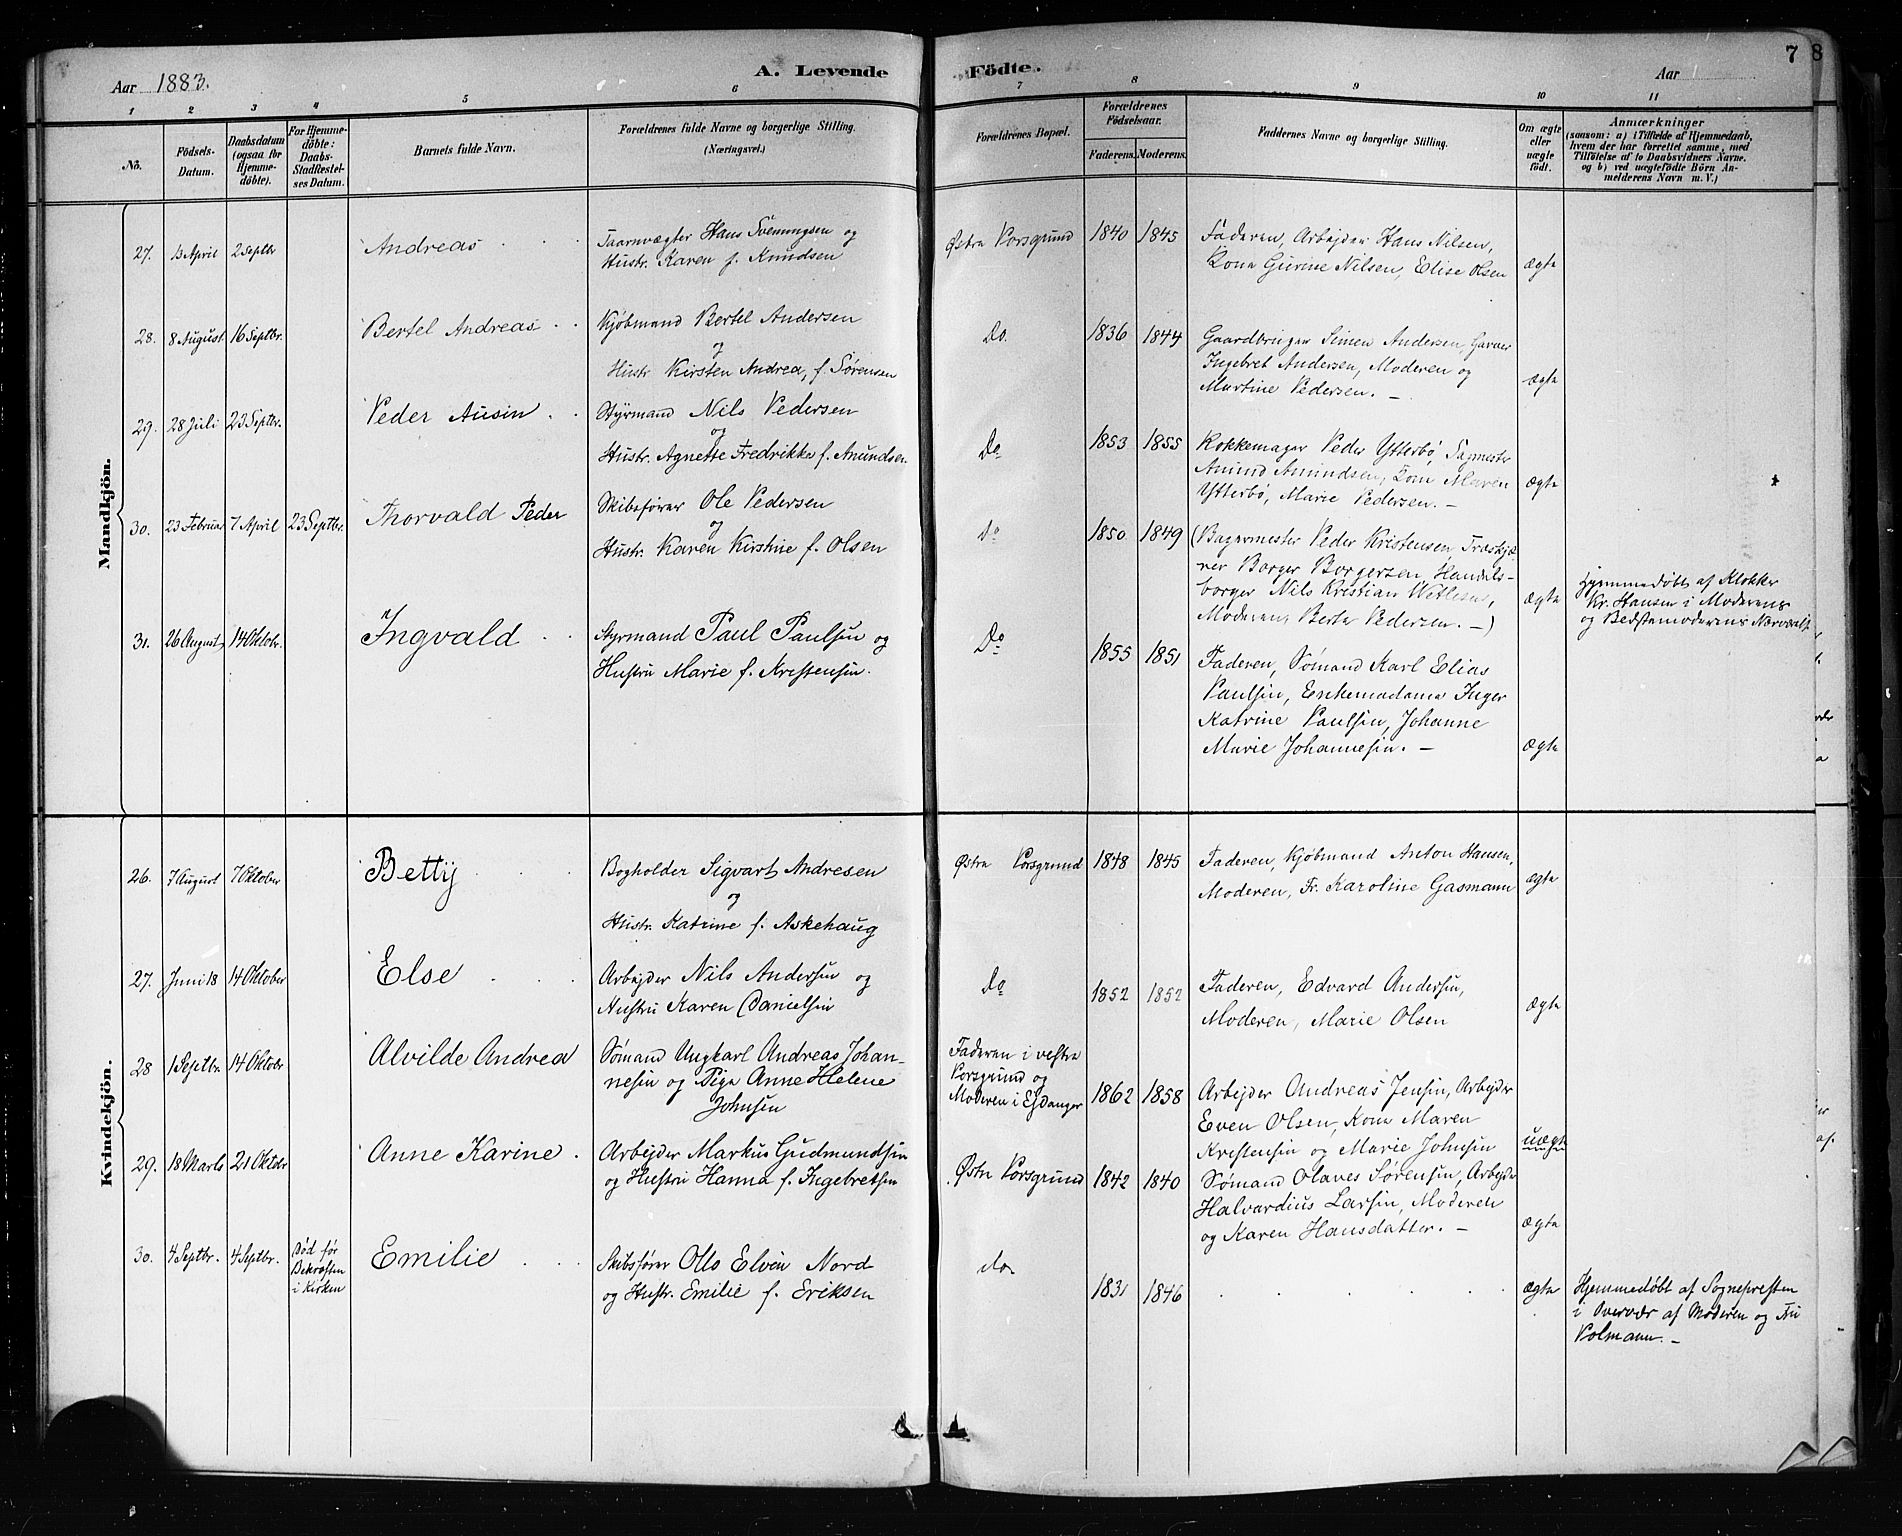 Aar 1883.
A. Levende Födte.
Aar
7
8
1 2 3 4 5 6 7 8 9 10 11
Nö.
Födsels-
Datum.
Daabsdatum
(ogsaa for
Hjemme-
döbte).
For Hjemme-
döbte:
Daabs-
Stadfæstel-
ses Datum.
Barnets fulde Navn.
Forældrenes fulde Navne og borgerlige Stilling.
(Næringsvei.)
Forældrenes Bopæl.
Forældrenes
Födselsaar.
Faderens. Moderens.
Faddernes Navne og borgerlige Stilling.
Om ægte
eller
uægte
födt.
Anmærkninger
(saasom: a) i Tilfælde af Hjemmedaab,
hvem der har forrettet samme, med
Tilföielse af to Daabsvidners Navne.
og b) ved uægtefödte Börn An-
melderens Navn m. V.)
Mandkjön.
27. 13 April 2 Septbr Andreas
Taarnvægter Hans Svenningsen og
Hustr. Karen f. Knudsen
Østre Porsgrund 1840 1845
Faderen, Arbejder Hans Nilsen,
Kone Gurine Nilsen, Elise Olsen
ægte
28. 8 August 16 Septbr. Bertel Andreas
Kjøbmand Bertel Andersen
og
Hustr. Kirsten Andrea, f. Sørensen
Do. 1836 1844
Gaardbruger Simen Andersen, Garver
Ingebret Andersen, Moderen og
Martine Pedersen. –
ægte
29. 28 Juli 23 Septbr. Peder Ausin
Styrmand Nils Pedersen
og
Hustr. Agnette Fredrikke f. Anundsen.
Do 1853 1855
Rokkemager Peder Ytterbø,
Anund Anundsen, Kone Maren
Ytterbø, Marie Pedersen. –
ægte
30. 23 Februar 7 April 23 Septbr. Thorvald Peder
Skibsfører Ole Pedersen
og
Hustr. Karen Kirstine f. Olsen
Do 1850 1849
(Bagermester Peder Kristensen,
Borger Borgersen, Handels-
borger Nils Kristian
Moderen, Berte Pedersen. –)
ægte
Hjemmedøbt af Klokker
Kr. Hansen i Moderens
og Bedstemoderens Nærvær
31. 26 August 14 Oktobr. Ingvald
Styrmand Paul Paulsen og
Hustru Marie f. Kristensen.
Do 1855 1851
Faderen, Sømand Karl Elias
Paulsen, Enkemadame Inger
Katrine Paulsen, Johanne
Marie Johannesen. –
ægte
Kvindekjön.
26. 7 August 7 Oktober Betty
Bogholder Sigvart Andresen
og
Hustr. Katrine f. Askehaug
Østre Porsgrund 1848 1845
Faderen, Kjøbmand Anton Hansen,
Moderen, Fr. Karoline Gasmann
ægte
27. Juni 18 14 Oktober Else
Arbejder Nils Andersen og
Hustru Karen Danielsen
Do 1852 1852
Faderen, Edvard Andersen,
Moderen, Marie Olsen
ægte
28 1 Septbr. 14 Oktobr Alvilde Andrea
Sømand Ungkarl Andreas Johan-
nesen og Pige Anne Helene
Johnsen
Faderen i vestre
Porsgrund og
Moderen i Ejdanger
1862 1858
Arbejder Andreas Jensen, Arbejder
Even Olsen, Kone Maren
Kristensen og Marie Johnsen
uægte
29. 18 Marts 21 Oktbr Anne Karine.
Arbejder Markus Gudmundsen
og Hustru Hanna f. Ingebretsen
Østre Porsgrund 1842 1840
Sømand Olaves Sørensen, Arbejder
Halvardius Larsen, Moderen
og Karen Hansdatter. –
ægte
30. 4 Septbr. 4 Septbr.
Død før
Bekræften
i Kirken
Emilie
Skibsfører Otto Elven Nord
og Hustr. Emilie f. Eriksen
do. 1831 1846
ægte
Hjemmedøbt af Sognepresten
i Overvær af Moderen og Fru
Polmann. –